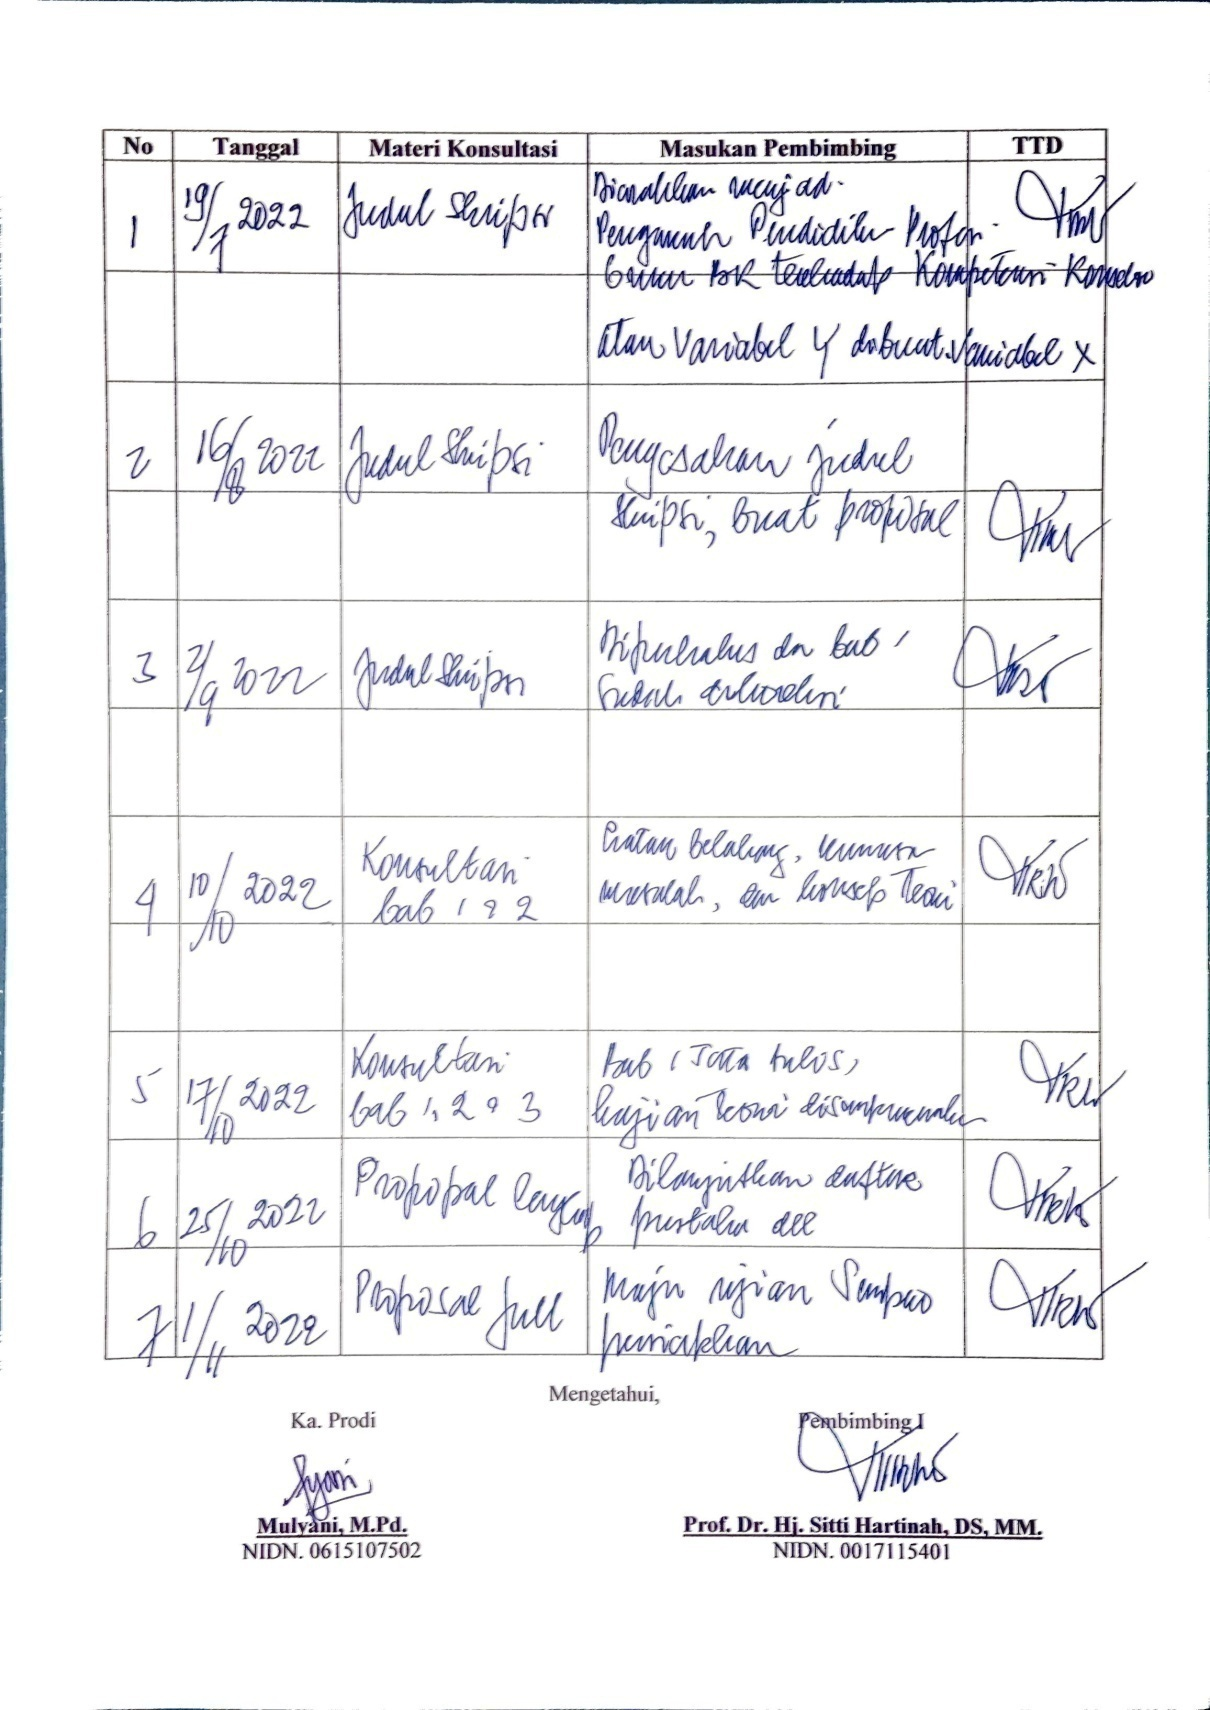 No Tanggal Materi Konsultasi Masukan Pembimbing TTD
1 19/7 2022 Judul Skripsi Diarahkan menjadi
Pengaruh Pendidikan Profesi
Guru BK terhadap Kompetensi Konselor
atau Variabel Y dibuat Variabel X
2 16/8 2022 Judul Skripsi Pengesahan judul
Skripsi, buat proposal
3 2/9 2022 Judul Skripsi bab 1
sudah
4 10/10 2022 Konsultasi
bab 1 & 2
Latar Belakang, rumusan
masalah, dan konsep Teori
5 17/10 2022 Konsultasi
bab 1, 2 & 3
Bab 1 Tata tulis,
kajian teori disempurnakan
6 25/10 2022 Proposal lengkap Dilanjutkan daftar
pustaka dll
7 1/11 2022 Proposal full Maju ujian Sempro
persiapkan
Mengetahui,
Ka. Prodi Pembimbing I
Mulyani, M.Pd. Prof. Dr. Hj. Sitti Hartinah, DS, MM.
NIDN. 0615107502 NIDN. 0017115401